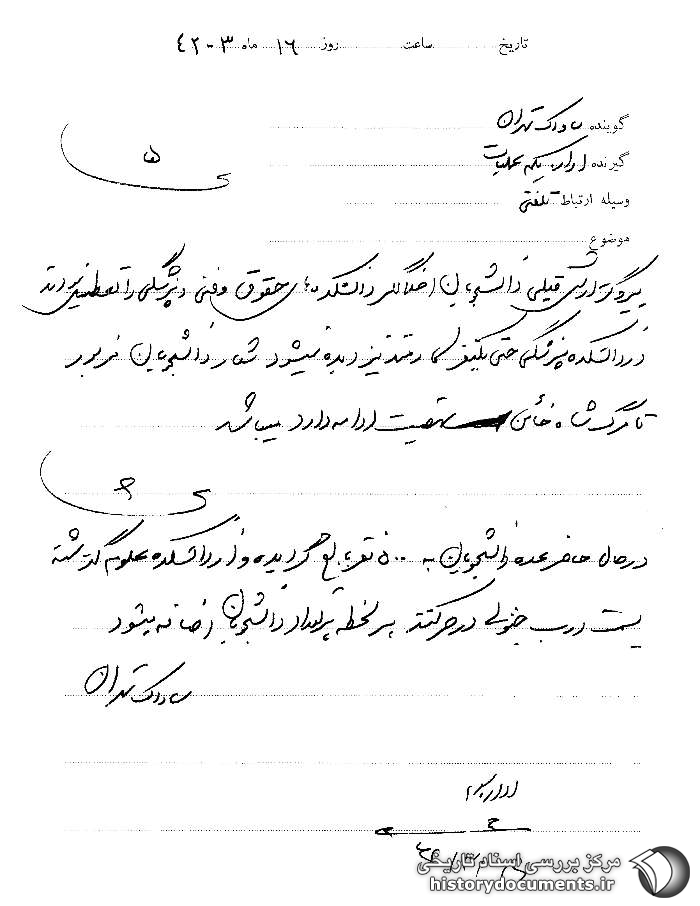 تاریخ ساعت روز ۱۶ ماه ۳-۴۲
گوینده ساواک تهران
گیرنده اداره یکم عملیات
۵
وسیله ارتباط تلفنی
موضوع
پیرو گزارش قبلی دانشجویان اخلالگر دانشکده‌های حقوق و فنی و پزشکی را تعطیل کرده‌اند
در دانشکده پزشکی حتی یکنفر هم دیده نمیشود شعار دانشجویان مزبور
تا مرگ شاه خائن نهضت ادامه دارد میباشد
در حال حاضر عده دانشجویان به ۵۰۰ نفر بالغ گردیده و از دانشکده علوم گذشته
بسمت درب جنوبی در حرکتند هر لحظه بر تعداد دانشجویان اضافه میشود
ساواک تهران
مرکز بررسی اسناد تاریخی
historydocuments.ir